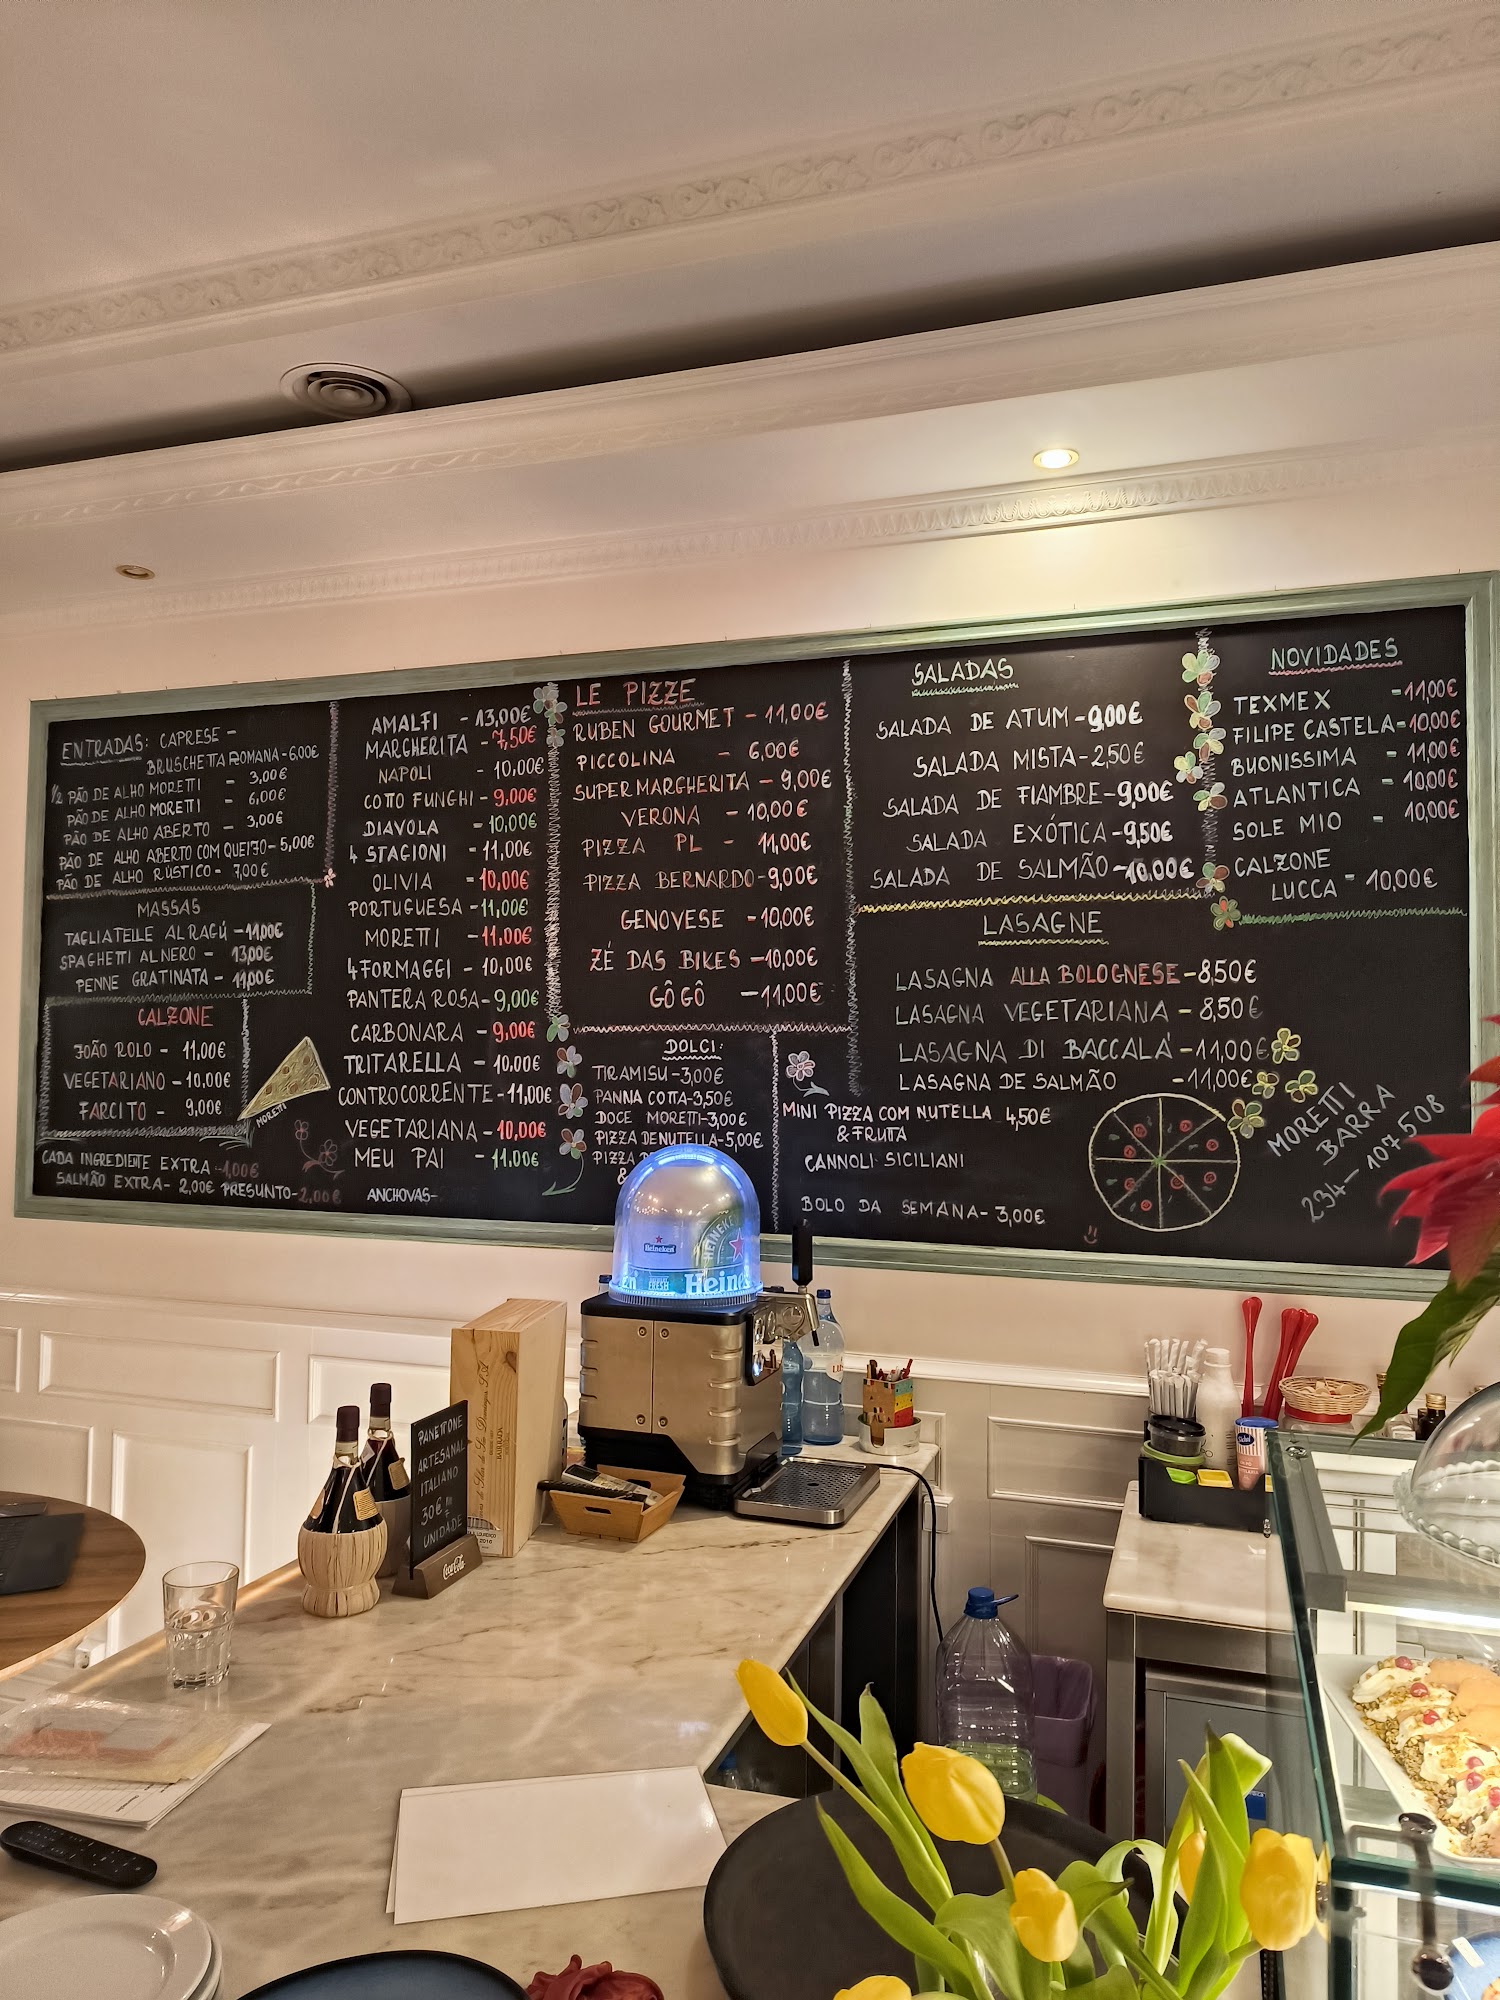 ENTRADAS: CAPRESE -
BRUSCHETTA ROMANA - 6,00€
1/2 PÃO DE ALHO MORETTI - 3,00€
PÃO DE ALHO MORETTI - 6,00€
PÃO DE ALHO ABERTO - 3,00€
PÃO DE ALHO ABERTO COM QUEIJO - 5,00€
PÃO DE ALHO RÚSTICO - 7,00€
MASSAS
TAGLIATELLE AL RAGÚ - 11,00€
SPAGHETTI AL NERO - 13,00€
PENNE GRATINATA - 11,00€
CALZONE
JOÃO ROLO - 11,00€
VEGETARIANO - 10,00€
FARCITO - 9,00€
MORETTI
CADA INGREDIENTE EXTRA - 1,00€
SALMÃO EXTRA - 2,00€ PRESUNTO - 2,00€
AMALFI - 13,00€
MARGHERITA - 7,50€
NAPOLI - 10,00€
COTTO FUNGHI - 9,00€
DIAVOLA - 10,00€
4 STAGIONI - 11,00€
OLIVIA - 10,00€
PORTUGUESA - 11,00€
MORETTI - 11,00€
4 FORMAGGI - 10,00€
PANTERA ROSA - 9,00€
CARBONARA - 9,00€
TRITARELLA - 10,00€
CONTROCORRENTE - 11,00€
VEGETARIANA - 10,00€
MEU PAI - 11,00€
ANCHOVAS -
LE PIZZE
RUBEN GOURMET - 11,00€
PICCOLINA - 6,00€
SUPER MARGHERITA - 9,00€
VERONA - 10,00€
PIZZA PL - 11,00€
PIZZA BERNARDO - 9,00€
GENOVESE - 10,00€
ZÉ DAS BIKES - 10,00€
GÔ GÔ - 11,00€
DOLCI:
TIRAMISU - 3,00€
PANNA COTTA - 3,50€
DOCE MORETTI - 3,00€
PIZZA DE NUTELLA - 5,00€
PIZZA
&
MINI PIZZA COM NUTELLA 4,50€
& FRUTTA
CANNOLI SICILIANI
BOLO DA SEMANA - 3,00€
SALADAS
SALADA DE ATUM - 9,00€
SALADA MISTA - 2,50€
SALADA DE FIAMBRE - 9,00€
SALADA EXÓTICA - 9,50€
SALADA DE SALMÃO - 10,00€
LASAGNE
LASAGNA ALLA BOLOGNESE - 8,50€
LASAGNA VEGETARIANA - 8,50€
LASAGNA DI BACCALÀ - 11,00€
LASAGNA DE SALMÃO - 11,00€
NOVIDADES
TEXMEX - 11,00€
FILIPE CASTELA - 10,00€
BUONISSIMA - 11,00€
ATLANTICA - 10,00€
SOLE MIO - 10,00€
CALZONE
LUCCA - 10,00€
MORETTI
BARRA
234 - 107 508
Heineken
HEINEKEN
FRESH
Heine
PANETTONE
ARTESANAL
ITALIANO
30€
UNIDADE
Coca-Cola